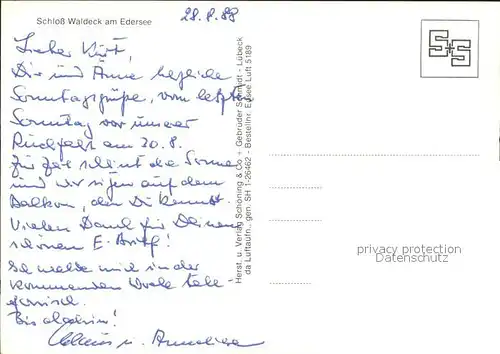 Schloß Waldeck am Edersee
28.8.88
Lieber Kurt,
Dir und Änne herzliche
Sonntagsgrüße, vom letzten
Sonntag vor unserer
Rückfahrt am 30.8.
Zur Zeit scheint die Sonne
und wir sitzen auf dem
Balkon, den Du kennst.
Vielen Dank für Deinen
schönen E. Brief!
Ich melde mich in der
kommenden Woche tele-
fonisch.
Bis dahin!
Klaus u. Anneliese
Herst. u. Verlag Schöning & Co. - Gebrüder Schmidt - Lübeck
da Luftaufn., gen. SH 1-26462 - Bestellnr. Edsee Luft 5189
S+S
privacy protection
Datenschutz